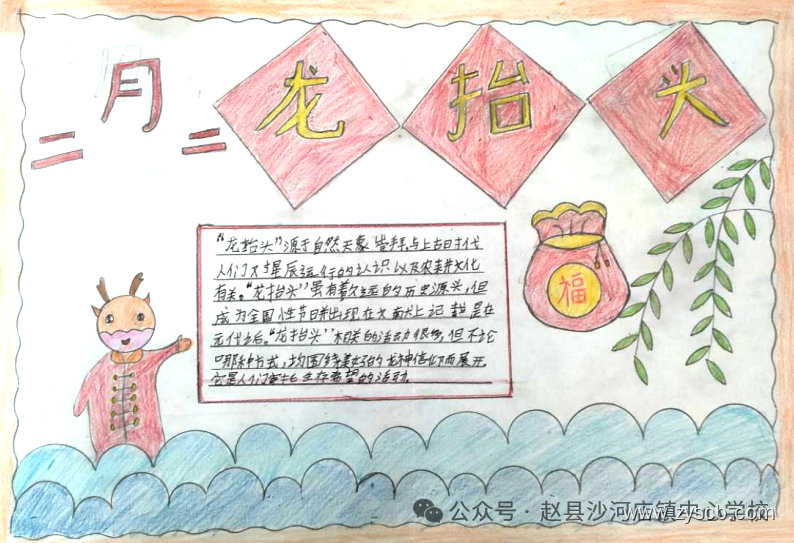 二月二 龙抬头
“龙抬头”源于自然天象崇拜,与上古时代
人们对星辰运行的认识以及农耕文化
有关。“龙抬头”虽有着久远的历史源头,但
成为全国性节日并出现在文献上记载是在
元代之后。“龙抬头”相关的活动很多,但不论
哪种方式,均围绕美好的龙神信仰而展开,
它是人们寄托生存希望的活动.
福
公众号·赵县沙河店镇中心学校
www.zyscb.com